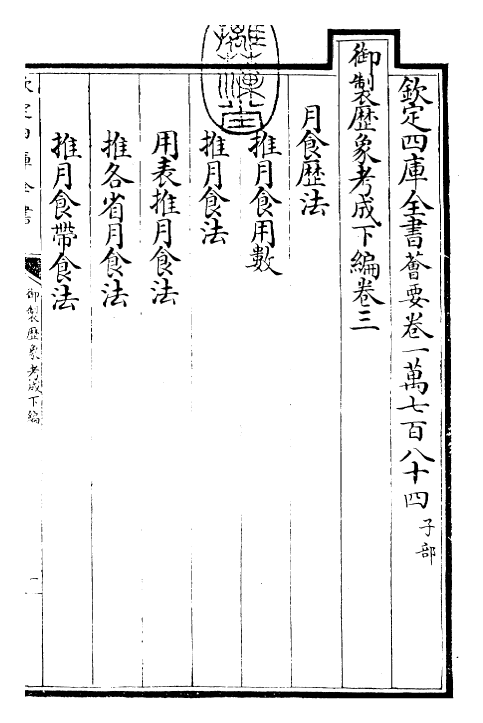 欽定四庫全書薈要卷一萬七百八十四 子部
御製歷象考成下編卷三
月食歷法
推月食用數
推月食法
用表推月食法
推各省月食法
推月食帶食法
欽定四庫全書
御製歷象考成下編
一